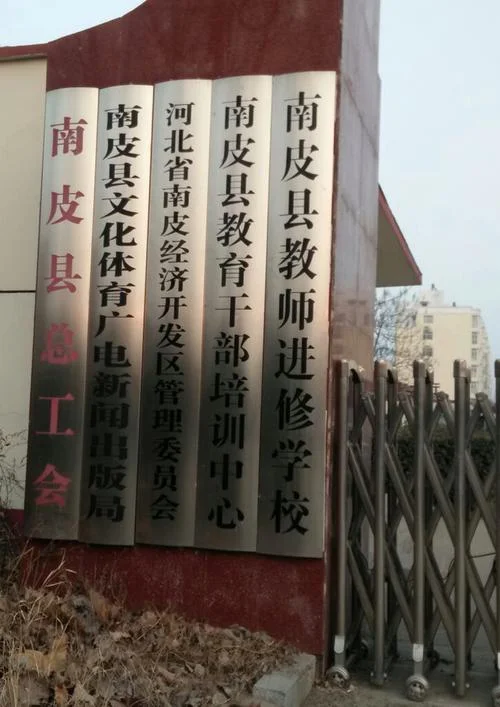 南皮县总工会
南皮县文化体育广电新闻出版局
河北省南皮经济开发区管理委员会
南皮县教育干部培训中心
南皮县教师进修学校